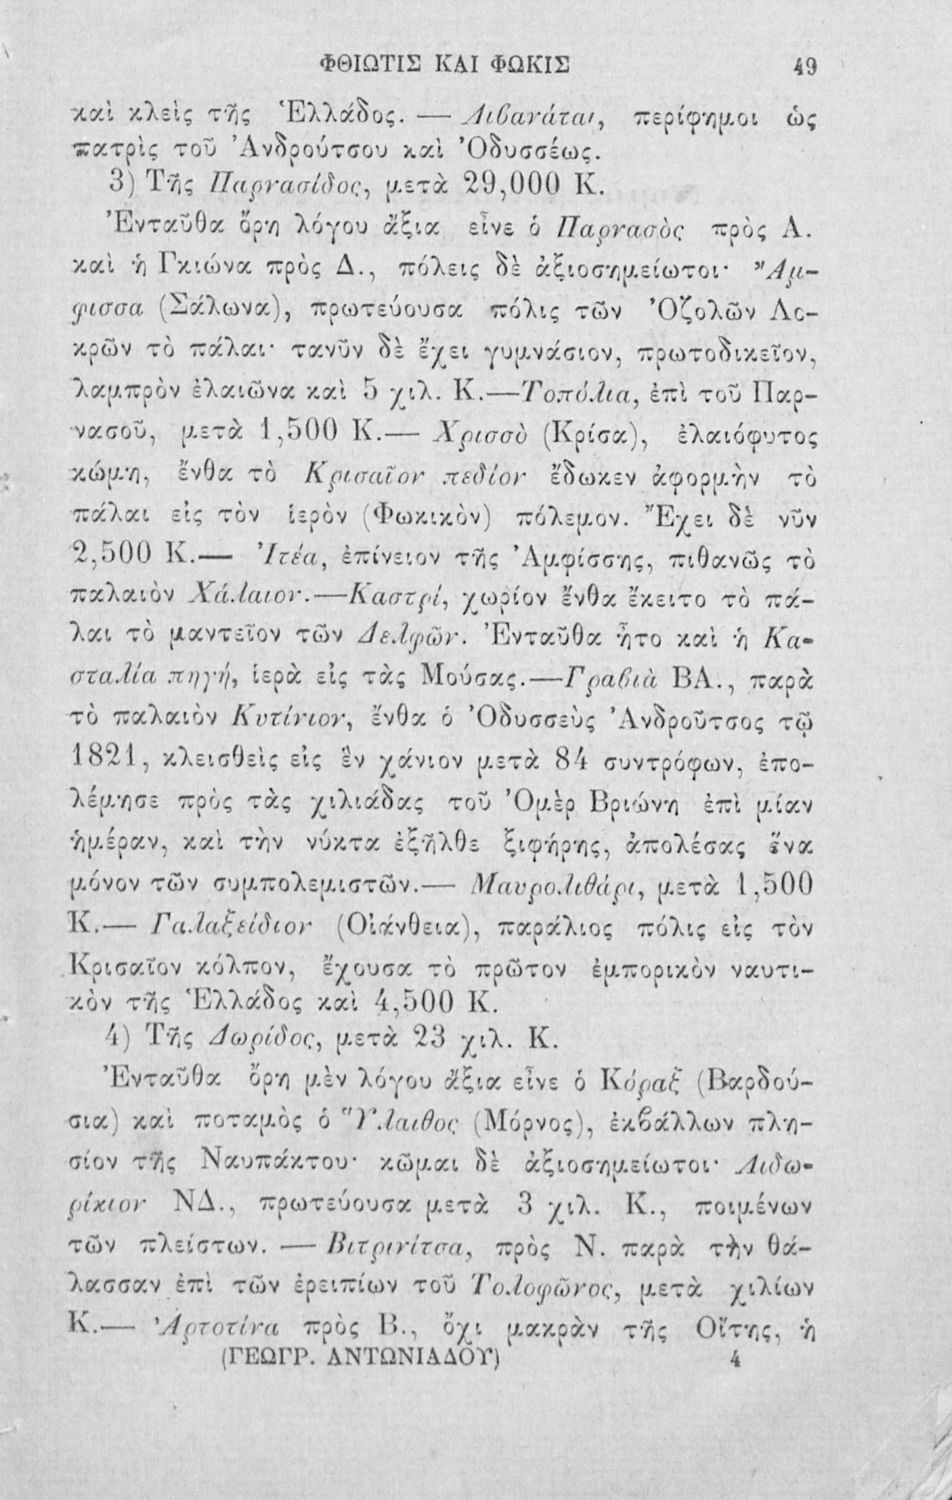 ΦΘΙΩΤΙΣ ΚΑΙ ΦΩΚΙΣ 49
καὶ κλεὶς τῆς Ἑλλάδος. — Λιβανάται, περίφημοι ὡς
πατρὶς τοῦ Ἀνδρούτσου καὶ Ὀδυσσέως.
3) Τῆς Παρνασίδος, μετὰ 29,000 Κ.
Ἐνταῦθα ὄρη λόγου ἄξια εἶνε ὁ Παρνασὸς πρὸς Α.
καὶ ἡ Γκιώνα πρὸς Δ., πόλεις δὲ ἀξιοσημείωτοι· Ἄμ-
φισσα (Σάλωνα), πρωτεύουσα πόλις τῶν Ὀζολῶν Λο-
κρῶν τὸ πάλαι· τανῦν δὲ ἔχει γυμνάσιον, πρωτοδικεῖον,
λαμπρὸν ἐλαιῶνα καὶ 5 χιλ. Κ.—Τοπόλια, ἐπὶ τοῦ Παρ-
νασοῦ, μετὰ 1,500 Κ.— Χρισσὸ (Κρίσα), ἐλαιόφυτος
κώμη, ἔνθα τὸ Κρισαῖον πεδίον ἔδωκεν ἀφορμὴν τὸ
πάλαι εἰς τὸν ἱερὸν (Φωκικὸν) πόλεμον. Ἔχει δὲ νῦν
2,500 Κ.— Ἰτέα, ἐπίνειον τῆς Ἀμφίσσης, πιθανῶς τὸ
παλαιὸν Χάλαιον.—Καστρί, χωρίον ἔνθα ἔκειτο τὸ πά-
λαι τὸ μαντεῖον τῶν Δελφῶν. Ἐνταῦθα ἦτο καὶ ἡ Κα-
σταλία πηγή, ἱερὰ εἰς τὰς Μούσας.—Γραβιὰ ΒΑ., παρὰ
τὸ παλαιὸν Κυτίνιον, ἔνθα ὁ Ὀδυσσεὺς Ἀνδροῦτσος τῷ
1821, κλεισθεὶς εἰς ἓν χάνιον μετὰ 84 συντρόφων, ἐπο-
λέμησε πρὸς τὰς χιλιάδας τοῦ Ὀμὲρ Βριώνη ἐπὶ μίαν
ἡμέραν, καὶ τὴν νύκτα ἐξῆλθε ξιφήρης, ἀπολέσας ἕνα
μόνον τῶν συμπολεμιστῶν.— Μαυρολιθάρι, μετὰ 1,500
Κ.— Γαλαξείδιον (Οἰάνθεια), παράλιος πόλις εἰς τὸν
Κρισαῖον κόλπον, ἔχουσα τὸ πρῶτον ἐμπορικὸν ναυτι-
κὸν τῆς Ἑλλάδος καὶ 4,500 Κ.
4) Τῆς Δωρίδος, μετὰ 23 χιλ. Κ.
Ἐνταῦθα ὄρη μὲν λόγου ἄξια εἶνε ὁ Κόραξ (Βαρδού-
σια) καὶ ποταμὸς ὁ Ὕλαιθος (Μόρνος), ἐκβάλλων πλη-
σίον τῆς Ναυπάκτου· κῶμαι δὲ ἀξιοσημείωτοι· Λιδω-
ρίκιον ΝΔ., πρωτεύουσα μετὰ 3 χιλ. Κ., ποιμένων
τῶν πλείστων. — Βιτρινίτσα, πρὸς Ν. παρὰ τὴν θά-
λασσαν ἐπὶ τῶν ἐρειπίων τοῦ Τολοφῶνος, μετὰ χιλίων
Κ.— Ἀρτοτίνα πρὸς Β., ὄχι μακρὰν τῆς Οἴτης, ἡ
(ΓΕΩΓΡ. ΑΝΤΩΝΙΑΔΟΥ) 4